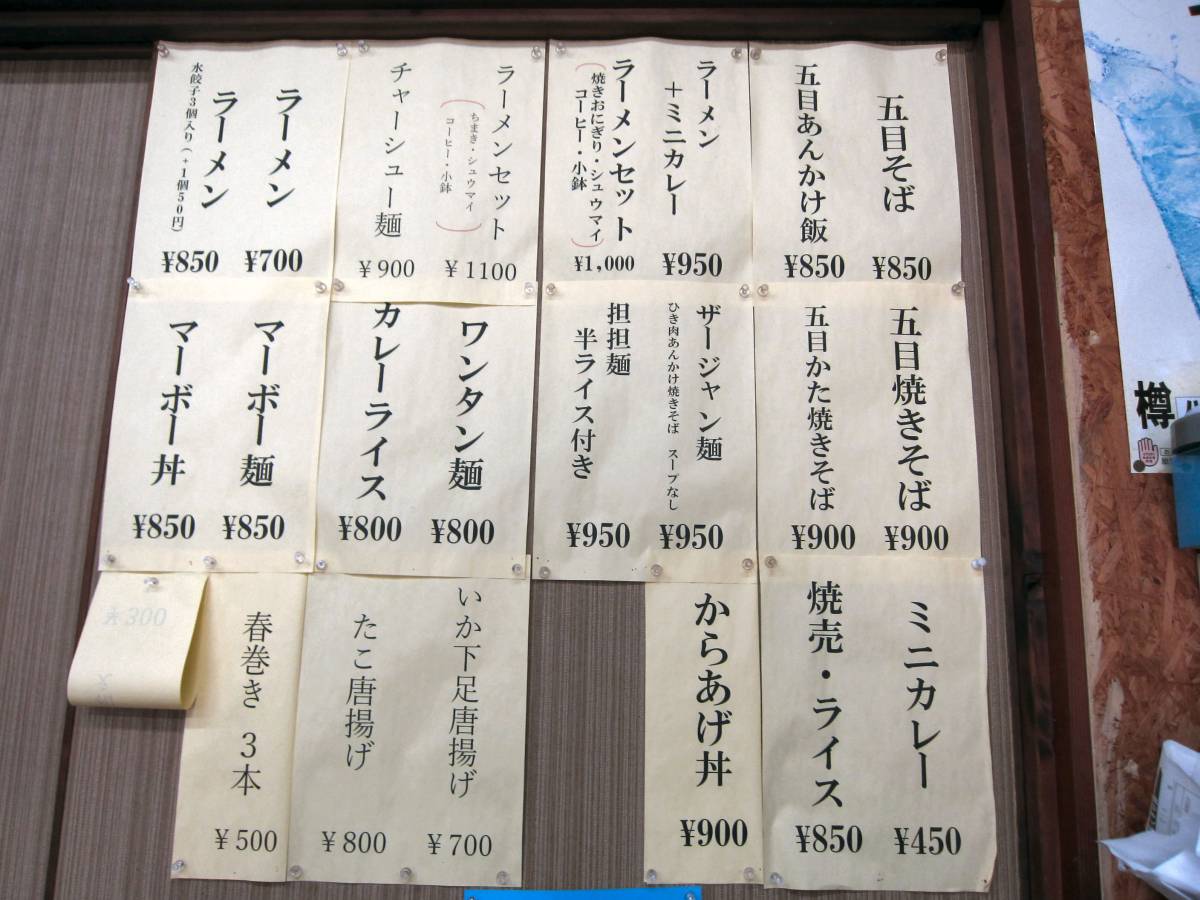 五目そば
¥850
五目あんかけ飯
¥850
ラーメン
+ミニカレー
¥950
ラーメンセット
(焼きおにぎり・シュウマイ
コーヒー・小鉢)
¥1,000
ラーメンセット
(ちまき・シュウマイ
コーヒー・小鉢)
¥1100
チャーシュー麺
¥900
ラーメン
¥700
ラーメン
水餃子3個入り(+1個50円)
¥850
五目焼きそば
¥900
五目かた焼きそば
¥900
ザージャン麺
ひき肉あんかけ焼きそば スープなし
¥950
担担麺
半ライス付き
¥950
ワンタン麺
¥800
カレーライス
¥800
マーボー麺
¥850
マーボー丼
¥850
ミニカレー
¥450
焼売・ライス
¥850
からあげ丼
¥900
いか下足唐揚げ
¥700
たこ唐揚げ
¥800
春巻き 3本
¥500
¥300
樽